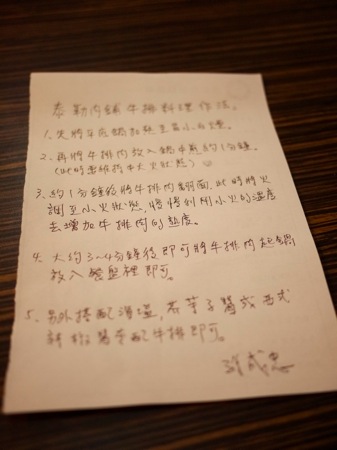 泰勒肉鋪牛排料理作法。
1. 先將平底鍋加熱至冒小白煙。
2. 再將牛排肉放入鍋中煎約1分鐘。
(此時需維持中大火狀態)
3. 約1分鐘後將牛排肉翻面,此時將火
調至小火狀態,將利用小火的溫度
去增加牛排肉的熟度。
4. 大約3~4分鐘後即可將牛排肉起鍋
放入餐盤裡即可。
5. 另外搭配海塩,芥茉子醬或西式
辣椒醬來配牛排即可。